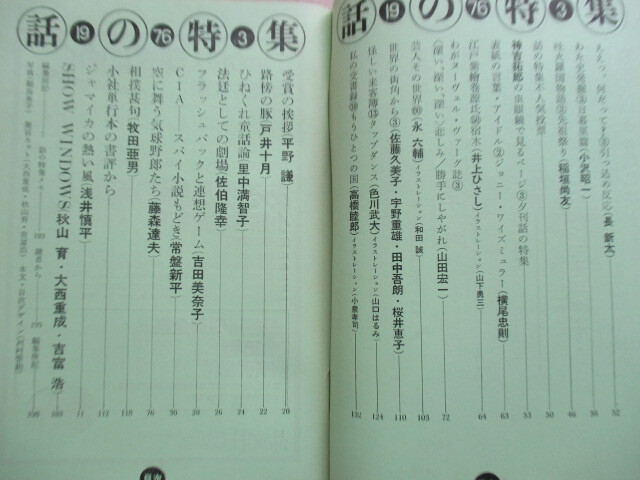 話の特集
19 76 3
ええっ、何だって？引っ込め反応(長 新太) 32
わた史発掘 日暮里篇(小沢昭一) 38
吐夫羅国物語 先祖祭り(稲垣尚友) 46
話の特集不人気投票 30
神吉拓郎の虫眼鏡で見るページ③夕刊話の特集 33
表紙の言葉・アイドル②ジョニー・ワイズミュラー(横尾忠則) 63
江戸紫絵巻源氏 宿木(井上ひさし)イラストレーション(山下勇三) 64
わがヌーヴェル・ヴァーグ誌③
〈深い、深い、深い〉悲しみ／勝手にしやがれ(山田宏一) 72
芸人その世界(永 六輔)イラストレーション(和田 誠) 103
世界の街角から③(佐藤久美子・宇野重雄・田中吾朗・桜井恵子) 110
怪しい来客簿 タップダンス(色川武大)イラストレーション(山口はるみ) 124
私の交書録 もうひとつの国(高橋睦郎)イラストレーション(小泉孝司) 132
話の特集
19 76 3
受賞の挨拶(平野 謙) 20
路傍の豚(戸井十月) 22
ひねくれ童話論(里中満智子) 24
法廷としての劇場(佐伯隆幸) 26
フラッシュバックと連想ゲーム(吉田美奈子) 28
CIA――スパイ小説もどき(常盤新平) 30
空に舞う気球野郎たち(藤森達夫) 76
相撲甚句(牧田亜男) 118
小社単行本の書評から 112
ジャマイカの熱い風(浅井慎平) 11
SHOW WINDOWS(秋山 育・大西重成・吉富 浩)
話の特集 193 読者から 195 編集後記